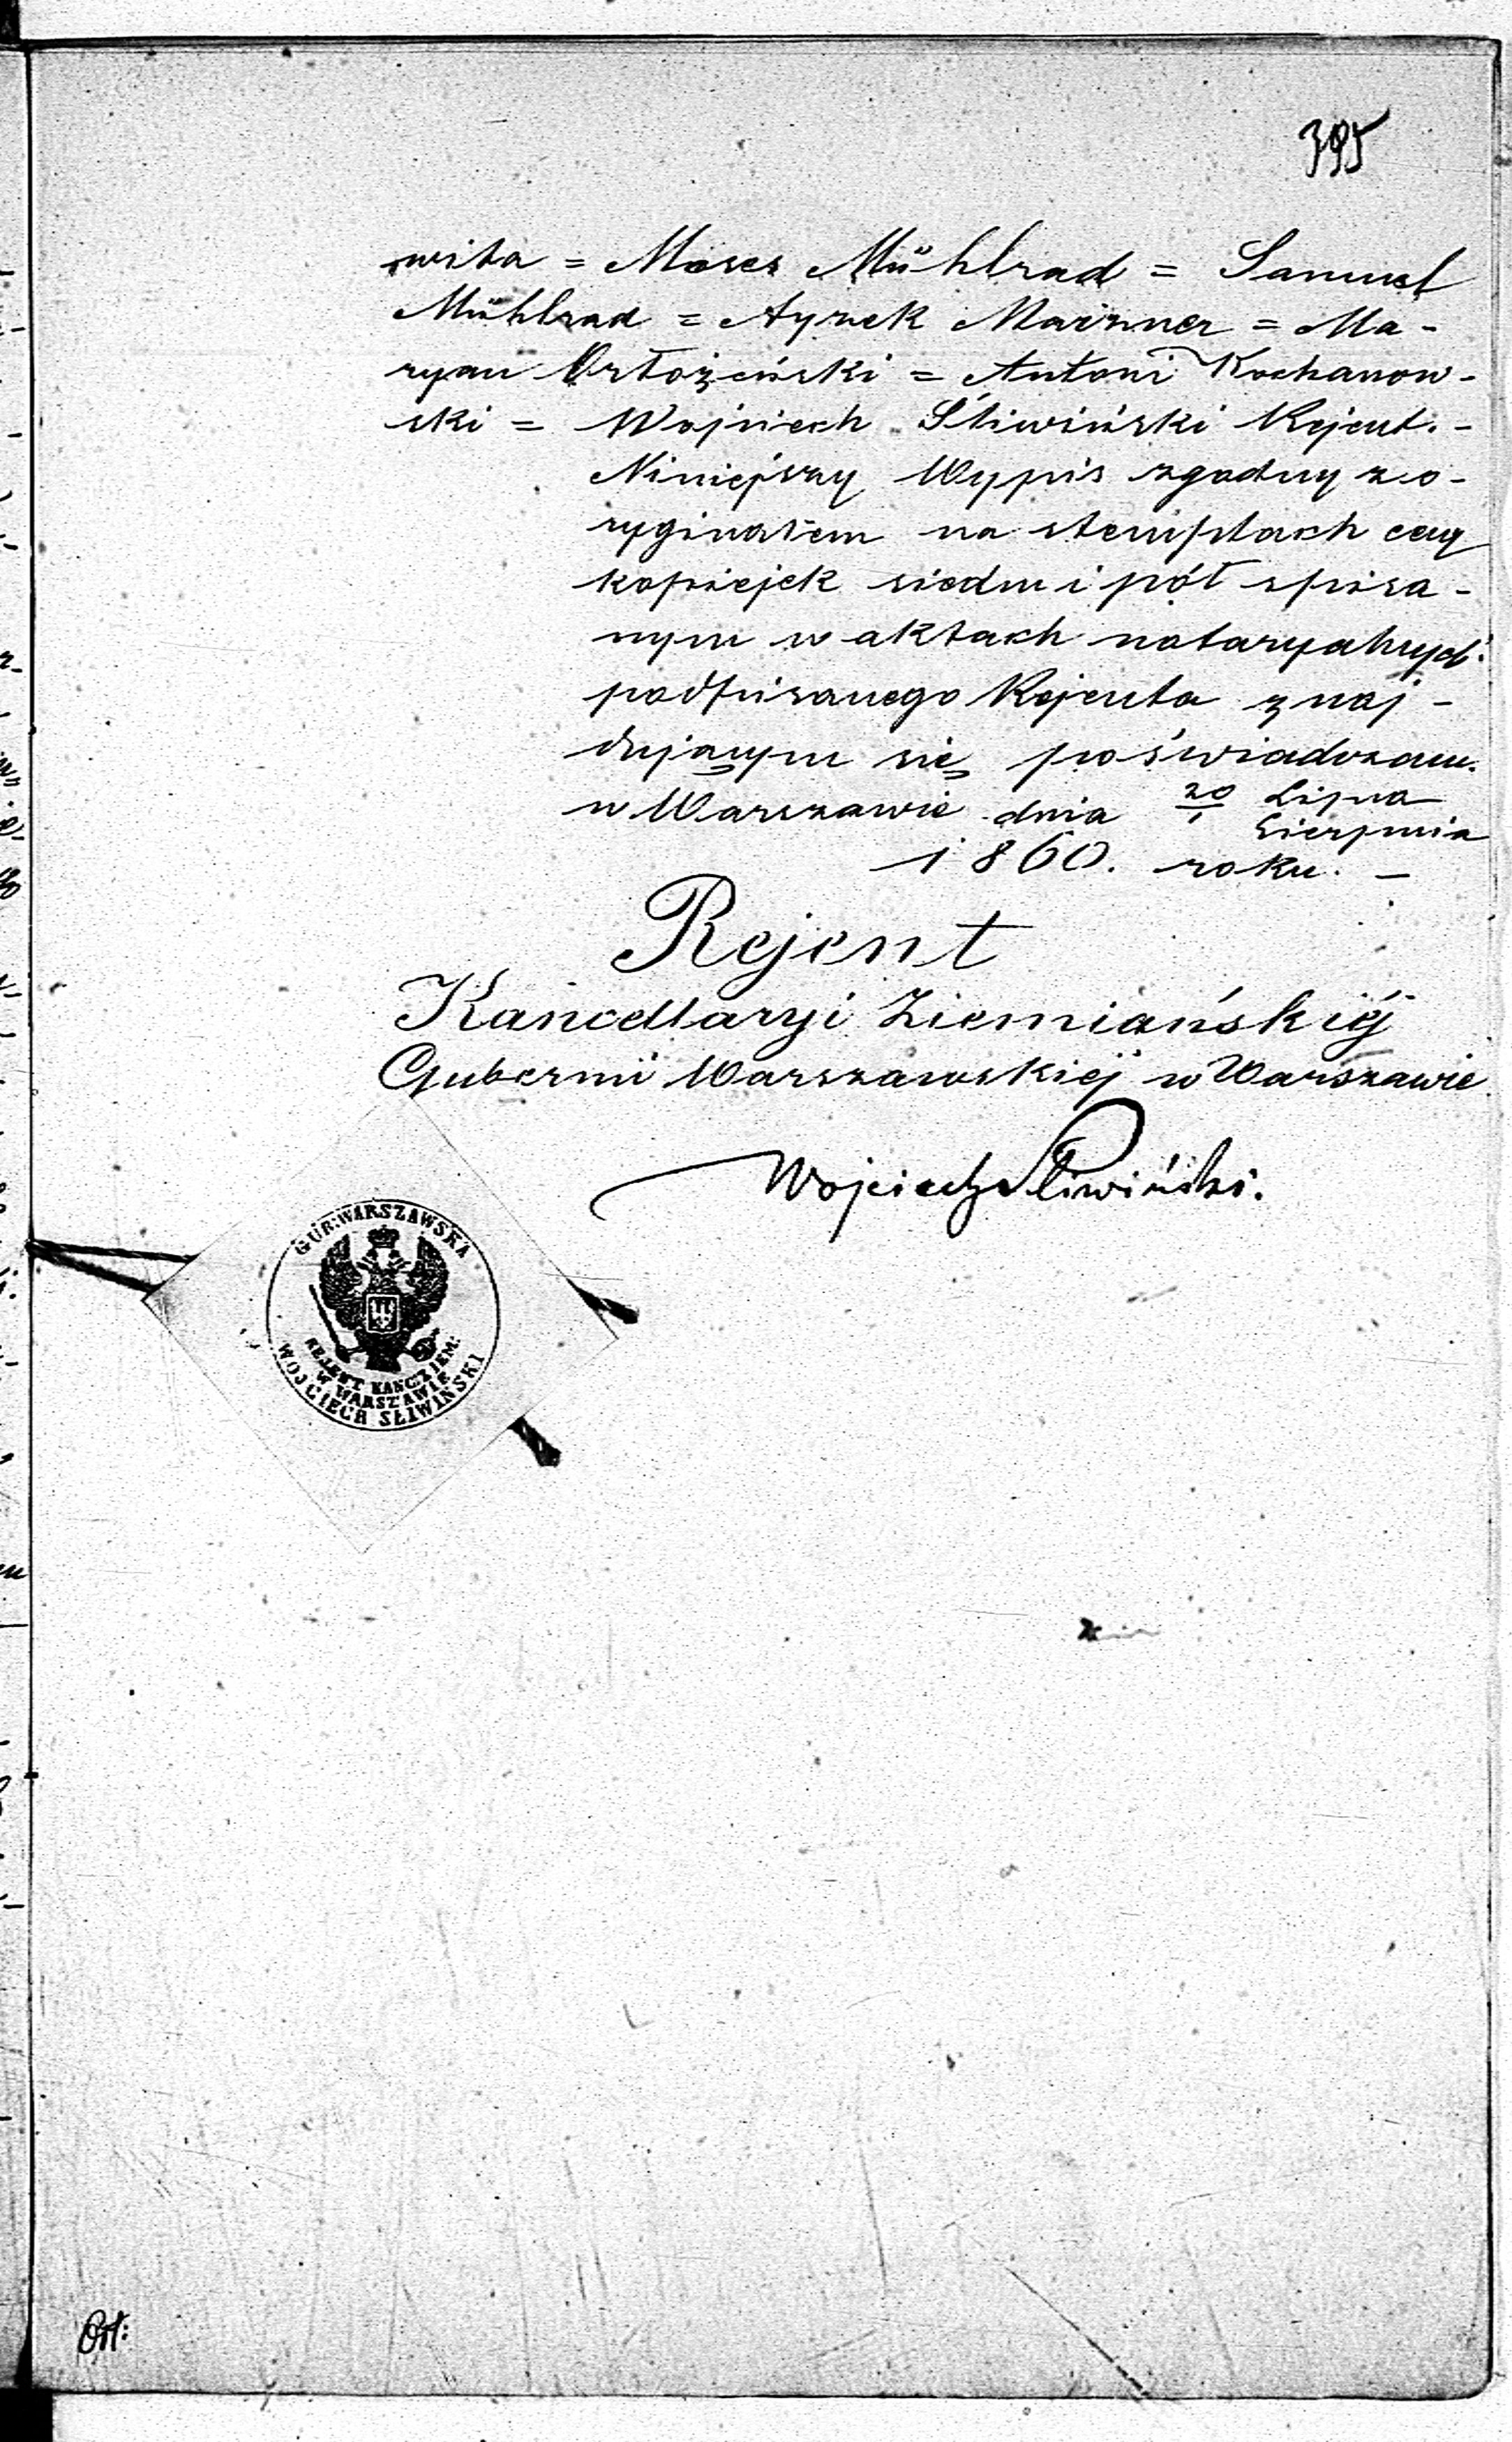 395
wita = Moses Mühlrad = Samuel
Mühlrad = Ayzek Marzner = Ma-
ryan Ortożeński = Antoni Kochanow-
ski = Wojciech Śliwiński Rejent. -
Niniejszy Wypis zgodny z o-
ryginałem na stemplach ceny
kopiejek siedm i pół spisa-
nym w aktach notaryalnych
podpisanego Rejenta znaj-
dującym się poświadczam.
w Warszawie dnia 20/1 Lipca
Sierpnia
1860. roku. -
Rejent
Kancellaryi Ziemiańskiéj
Gubernii Warszawskiéj w Warszawie
Wojciech Śliwiński.
GUB: WARSZAWSKA
REJENT KANC: ZIEM:
W WARSZAWIE
WOJCIECH SŁIWIŃSKI
Ort: